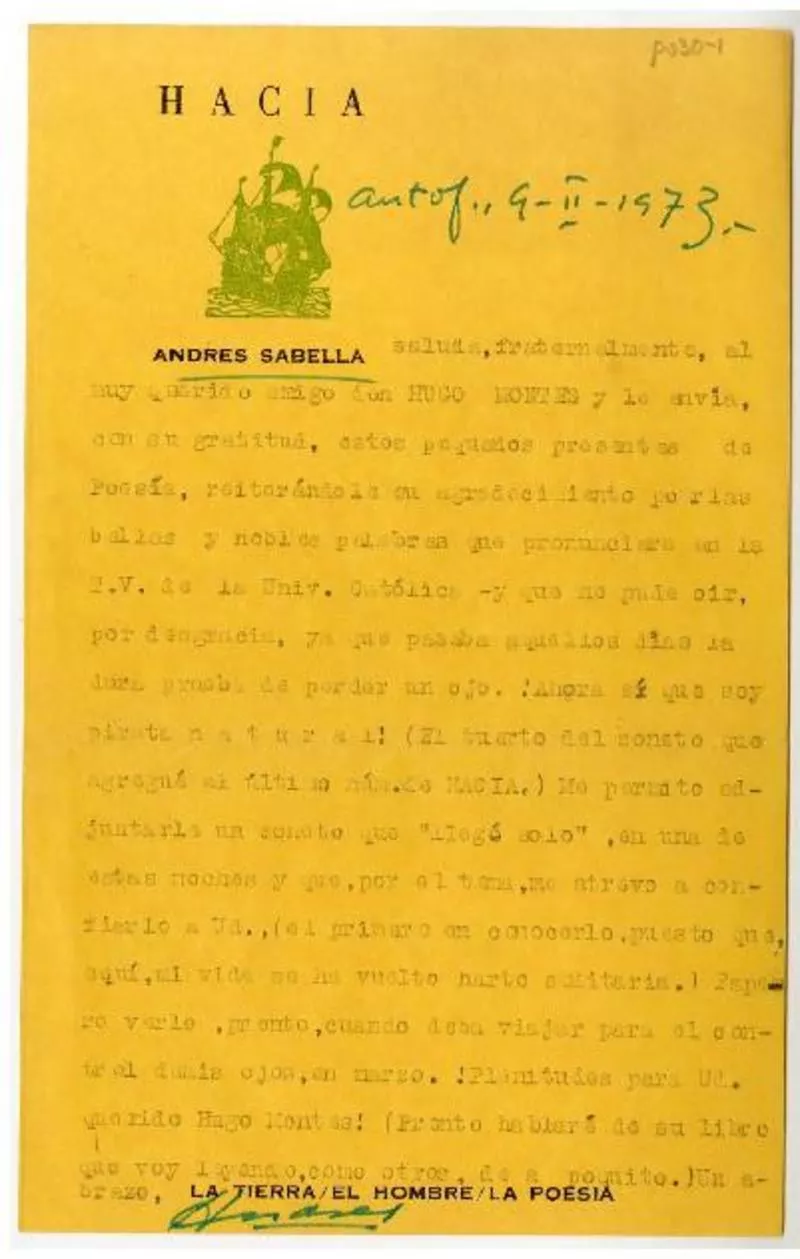 p030-1
HACIA
antof., 9-II-1973.-
ANDRES SABELLA saluda, fraternalmente, al
muy querido amigo don HUGO MONTES y le envía,
con su gratitud, estos pequeños presentes de
Poesía, reiterándole su agradecimiento por las
bellas y nobles palabras que pronunciara en la
T.V. de la Univ. Católica -y que no pude oir,
por desgracia, ya que pasaba aquellos dias la
dura prueba de perder un ojo. !Ahora sí que soy
pirata n a t u r a l! (El tuerto del soneto que
agregué al último núm.de HACIA.) Me permito ad-
juntarle un soneto que "llegó solo" ,en una de
estas noches y que,por el tema,me atrevo a con-
fiarlo a Ud.,(el primero en conocerlo,puesto que,
aquí,mi vida se ha vuelto harto solitaria.) Espe-
ro verle ,pronto,cuando deba viajar para el con-
trol demis ojos,en marzo. !Plenitudes para Ud.
querido Hugo Montes! (Pronto hablaré de su libro
que voy leyendo,como otros, de a poquito.)Un a-
brazo,
LA TIERRA/EL HOMBRE/LA POESIA
Andres